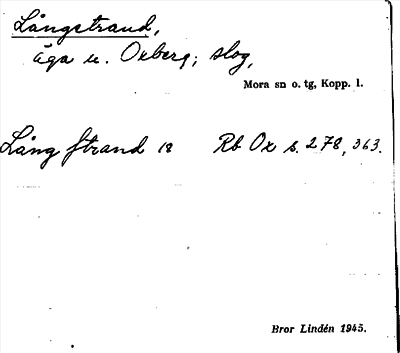 Långstrand,
äga u. Oxberg; slog,
Mora sn o. tg, Kopp. l.
Lång strand 18 Rb Ox s. 278, 363.
Bror Lindén 1945.